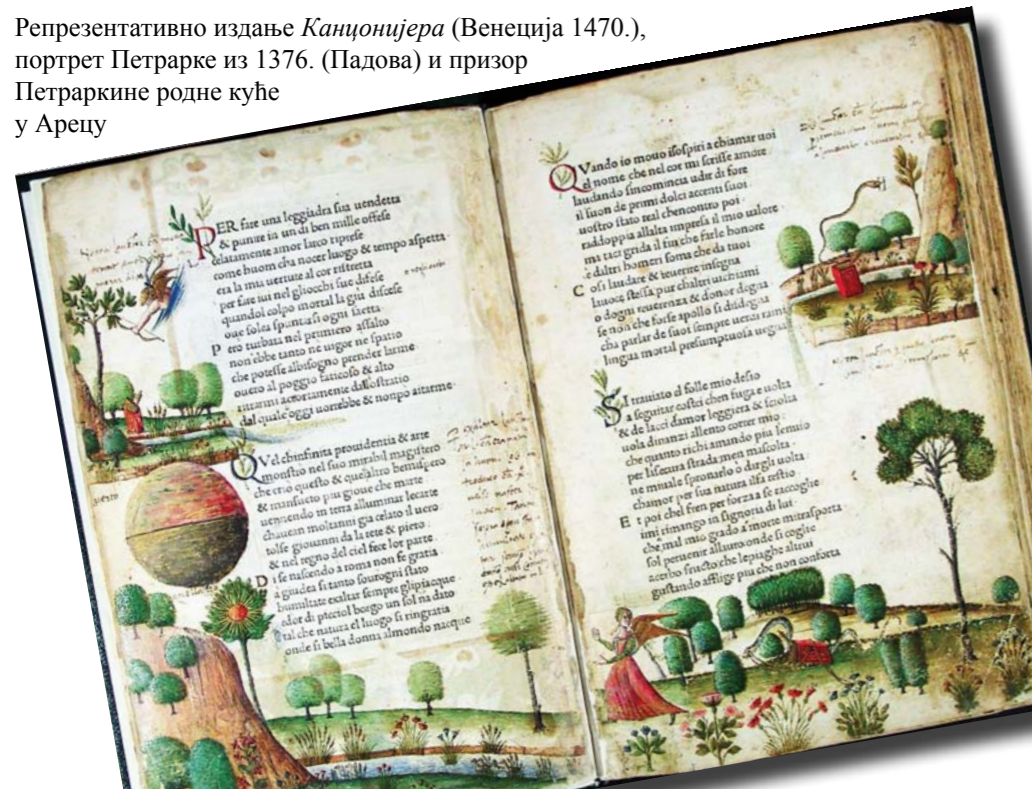 Репрезентативно издање Канцонијера (Венеција 1470.),
портрет Петрарке из 1376. (Падова) и призор
Петраркине родне куће
у Арецу
PER fare una leggiadra sua uendetta
& punire in un di ben mille offese
celatamente amor larco riprese
come huom cha nocer luogo & tempo aspetta
era la mia uertute al cor ristretta
per fare iui nel gliocchi sue difese
quandol colpo mortal la giu discese
oue solea spuntarsi ogni saetta
Pero turbata nel primiero assalto
non ebbe tanto ne uigor ne spatio
che potesse albisogno prender larme
ouero al poggio faticoso & alto
ritrarmi accortamente dallo stratio
dal quale oggi uorrebbe & non po aitarme
QVel chinfinita prouidentia & arte
monstro nel suo mirabil magistero
che crio questo & quelaltro hemispero
& mansueto piu gioue che marte
uenendo in terra alluminar lecarte
chauean moltanni gia celato il uero
tolse giouanni da la rete & piero
& nel regno del ciel fece lor parte
Di se nascendo a roma non fe gratia
a giudea si tanto sourogni stato
humiltate exaltar sempre glipiacque
edor di picciol borgo un sol na dato
tal che natura el luogo si ringratia
onde si bella donna almondo nacque
QVando io mouo isospiri a chiamar uoi
el nome che nel cor mi scrisse amore
laudando sincomincia udir di fore
il suon de primi dolci accenti suoi
uostro stato real chencontro poi
raddoppia allalta impresa il mio ualore
ma taci grida il fin che farle honore
e daltri homeri soma che da tuoi
Cosi laudare & reuerire insegna
lauoce stessa pur chaltri uichiami
o dogni reuerenza & donor degna
se non che forse apollo si disdegna
cha parlar de suoi sempre uerdi rami
lingua mortal presumptuosa uegna
SI trauiato el folle mio desio
a seguitar costei chen fuga e uolta
& de lacci damor leggiera & sciolta
uola dinanzi allento correr mio
che quanto richiamando piu lenuio
per lasecura strada men mascolta
ne miuale spronarlo o dargli uolta
chamor per sua natura ilfa restio
Et poi chel fren per forza a se raccoglie
imi rimango in signoria di lui
che mal mio grado a morte mitrasporta
sol per uenir allauro onde si coglie
acerbo fructo che lepiaghe altrui
gustando afflige piu che non conforta